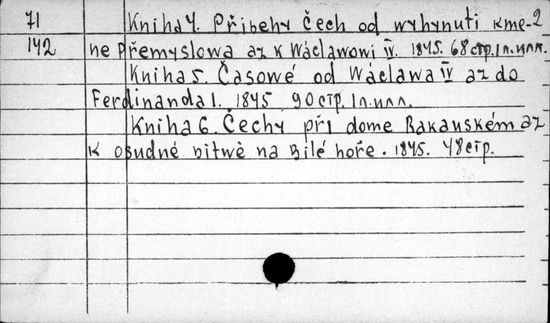 71 Kniha 4. Přiběhy Čech od wyhynuti kme- 2
142 ne Přemyslowa az k Wáclawowi IV. 1845. 68стр. 1л.илл.
Kniha 5. Časowé od Wáclawa IV az do
Ferdinanda I. 1845 90стр. 1л.илл.
Kniha 6. Čechy při dome Rakauském az
k osudné bitwě na Bilé hoře. 1845. 48стр.